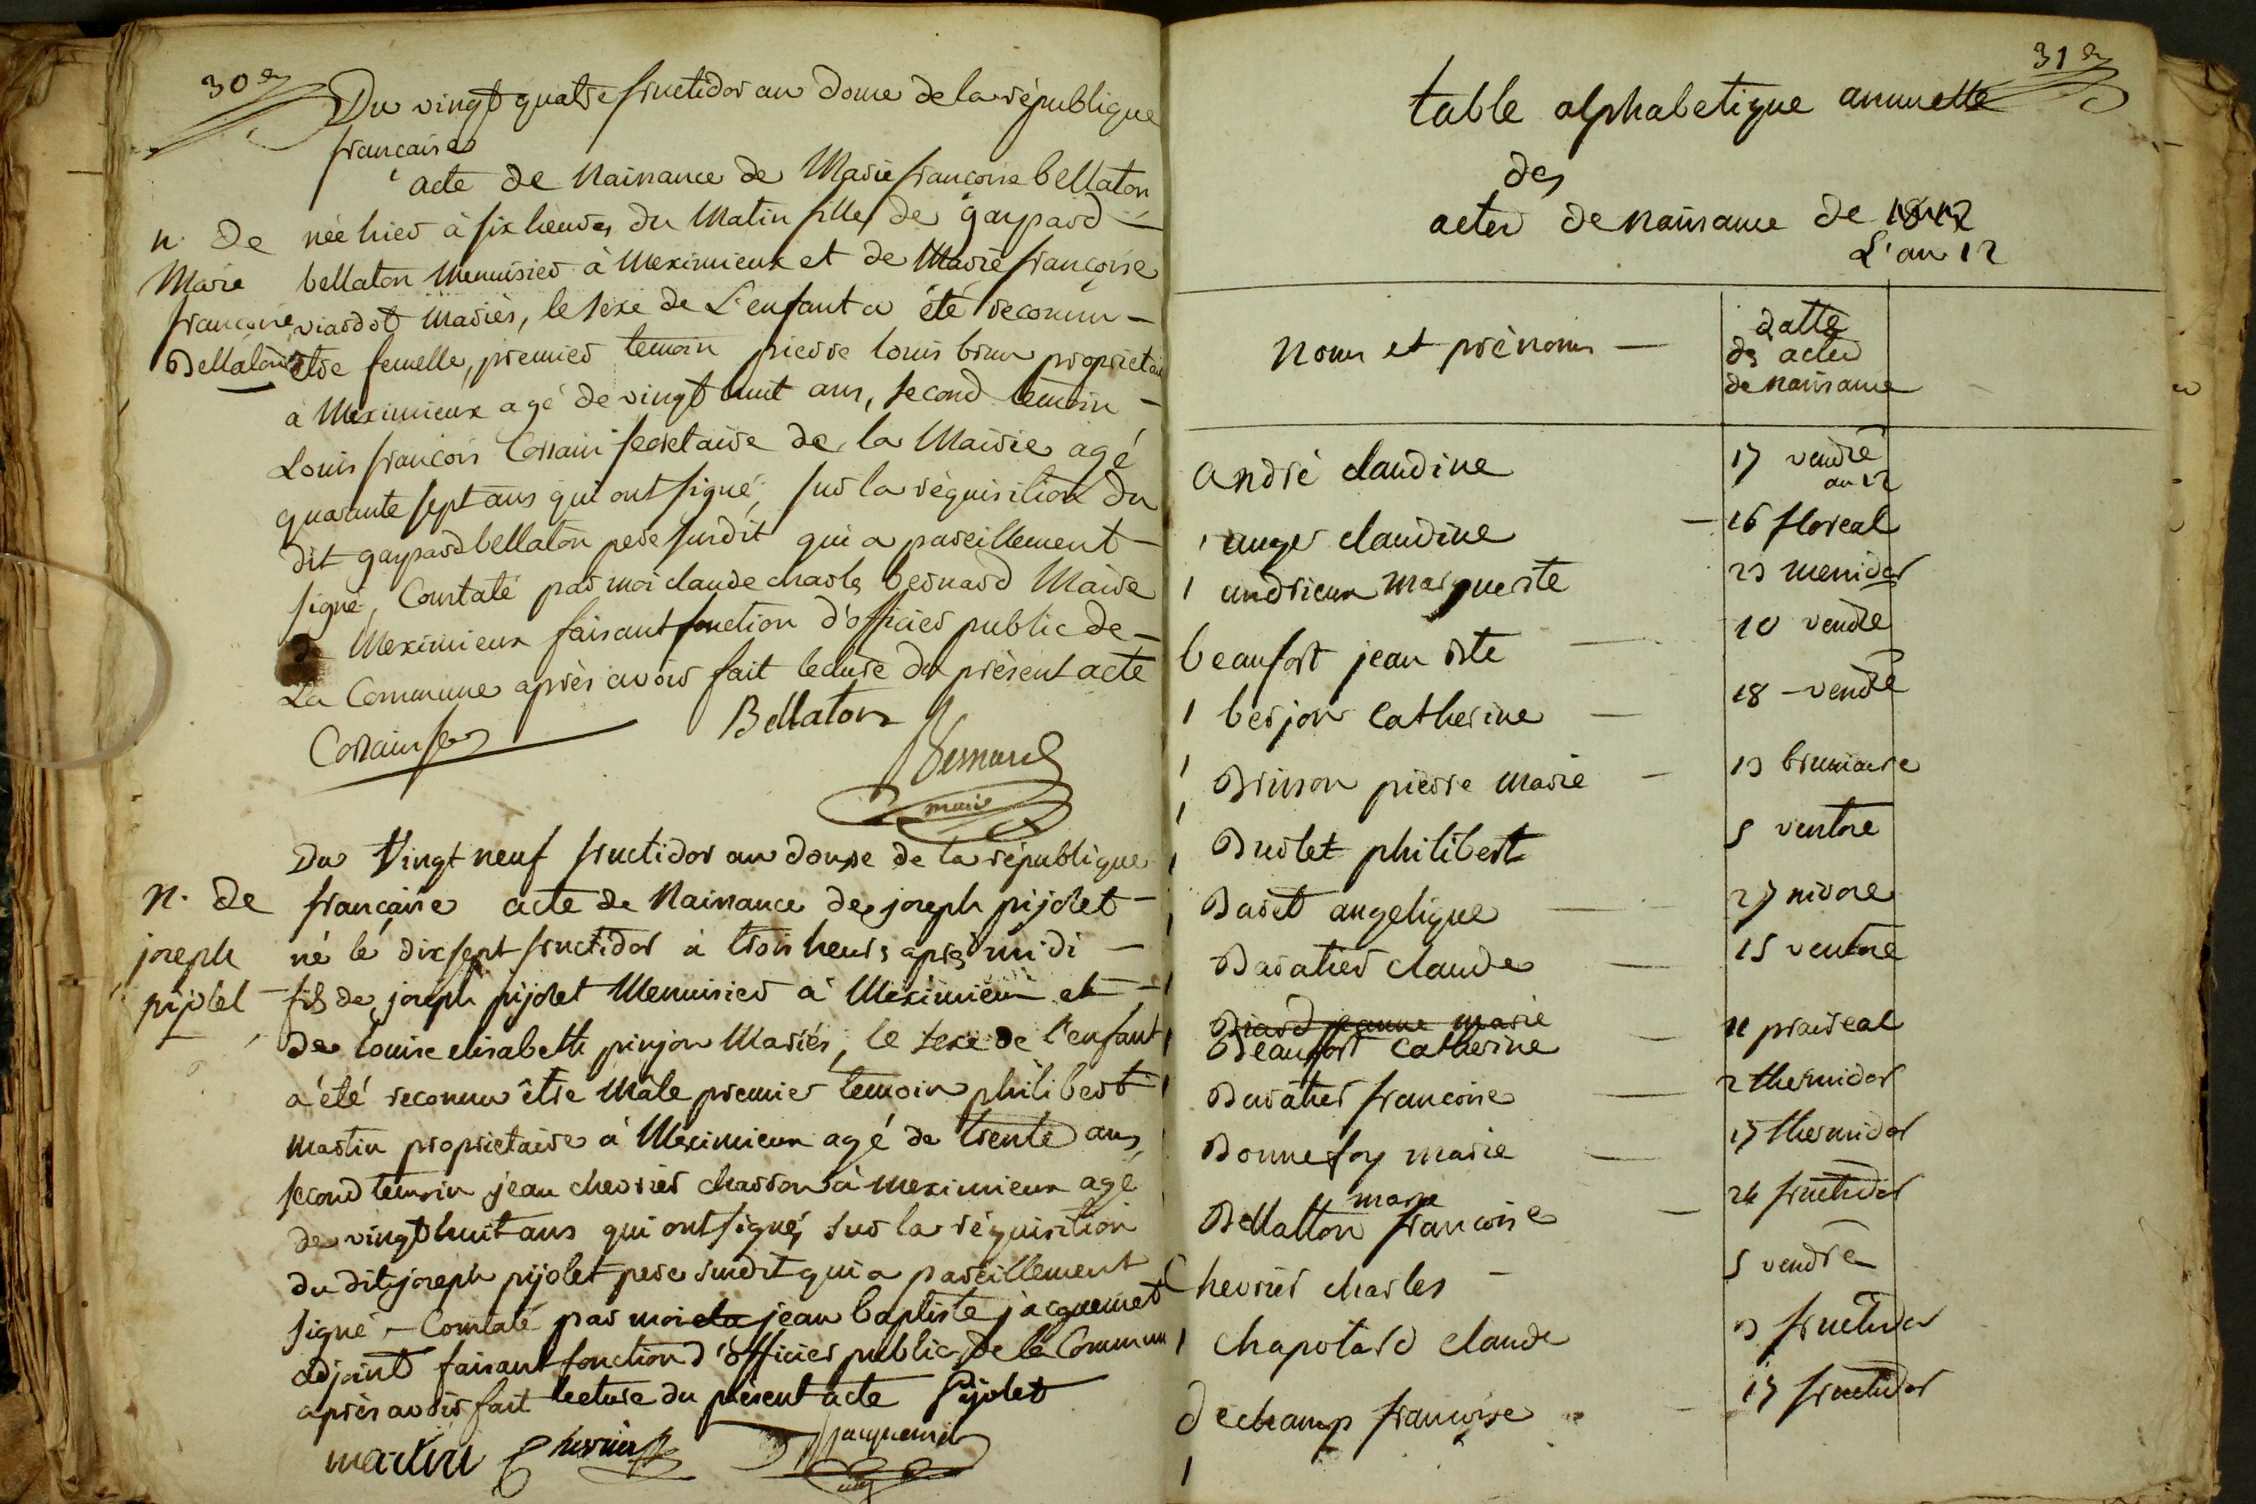 30e
Du vingt quatre fructidor an douze de la république
française
acte de Naissance de Marie françoise bellaton
née hier à six heures du Matin fille de gaspard
n. de
Marie
françoise
Bellaton
bellaton Menuisier à Meximieux et de Marie françoise
viardot Mariés, le sexe de L'enfant a été reconnu
etre femelle, premier temoin pierre louis brun proprietai
à Meximieux agé de vingt huit ans, second temoin
Louis françois Corrain secretaire de la Mairie agé
quarante sept ans qui ont signé, sur la réquisition du
dit gaspard bellaton pere susdit qui a pareillement
signé, Constaté par moi claude charles bernard Maire
de Meximieux faisant fonction d'officier public de
La Commune après avoir fait lecture du présent acte
Bellaton
Bernard
maire
Du Vingt neuf fructidor an douze de la république
n. de
joseph
pijolet
française acte de Naissance de joseph pijolet
né le dix sept fructidor à trois heures après midi
fils de joseph pijolet Menuisier à Meximieux et
de louise elisabeth pinjon Mariés, le sexe de l'enfant
a été reconnu être Mâle premier temoin philibert
martin proprietaire à Meximieux agé de trente ans,
second temoin jean chevrier charron à meximieux agé
de vingt huit ans qui ont signé, sur la réquisition
du dit joseph pijolet pere susdit qui a pareillement
signé - Constaté par moi jean baptiste jacquemet
adjoint faisant fonction d'officier public de la Commun
après avoir fait lecture du présent acte Pijolet
martin Chevrier Jacquemet
31e
table alphabetique annuelle
des
actes de naissance de
L'an 12
noms et prénoms
datte
des actes
de naissance
andré claudine 17 vendre
an 12
auger claudine 16 floreal
andrieux marguerite 23 messidor
beaufort jean bte 10 vendre
berjon catherine 18 vendre
Brisson pierre marie 13 brumaire
Buolet philibert 5 ventose
Baret angelique 27 nivose
Baratier claude 15 ventose
Biard jeanne marie
Beaufort Catherine 11 praireal
Baratier francoise 2 thermidor
Bonnefoy marie 17 thermidor
marie
Bellatton francoise 24 fructidor
Chevrier charles 5 vendre
Chapotard claude 3 fructidor
dechamp francoise 17 fructidor